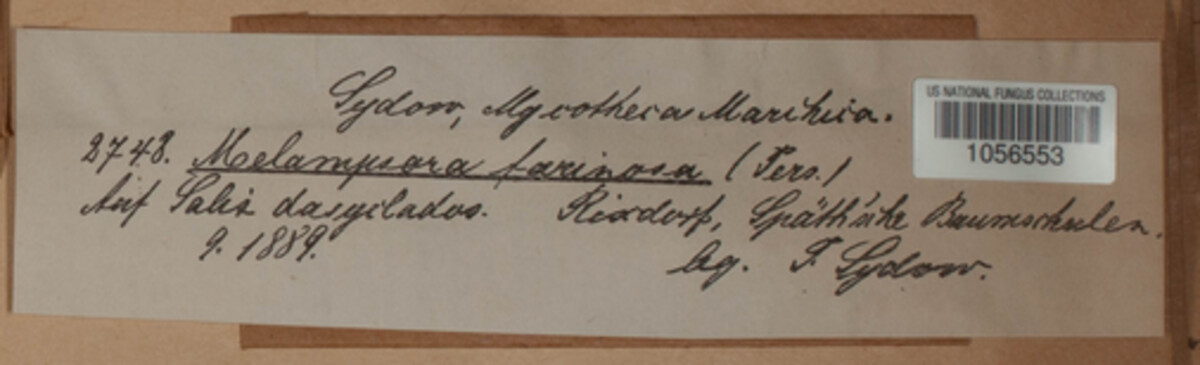 Sydow, Mycotheca Marchica.
US NATIONAL FUNGUS COLLECTIONS
1056553
2748. Melampsora farinosa (Pers.)
Auf Salix dasyclados. Rixdorf, Späth'sche Baumschulen.
9. 1889.
lg. P. Sydow.